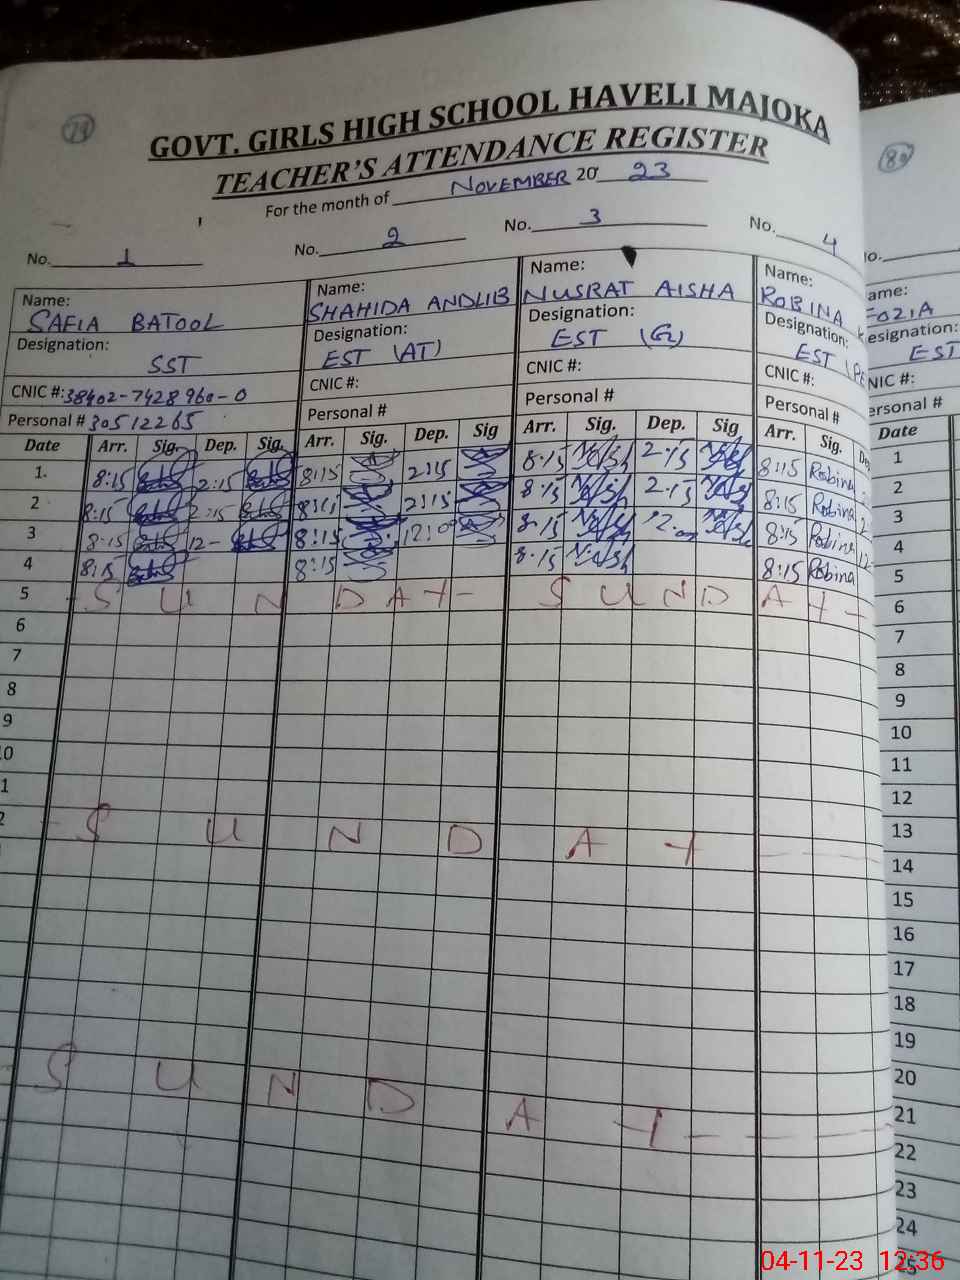 79
GOVT. GIRLS HIGH SCHOOL HAVELI MAJOKA
TEACHER'S ATTENDANCE REGISTER
For the month of NOVEMBER 20 23
No. 1 No. 2 No. 3 No. 4
Name: Name: Name: Name:
SAFIA BATOOL SHAHIDA ANDLIB NUSRAT AISHA ROBINA
Designation: Designation: Designation: Designation:
SST EST (AT) EST (G) EST (PE
CNIC #:38402-7428960-0 CNIC #: CNIC #: CNIC #:
Personal # 30512265 Personal # Personal # Personal #
Date Arr. Sig. Dep. Sig. Arr. Sig. Dep. Sig Arr. Sig. Dep. Sig Arr. Sig. De
1. 8:15 2:15 8:15 2:15 8:15 2:15 8:15 Robina
2 8:15 2:15 8:15 2:15 8:15 2:15 8:15 Robina
3 8:15 12- 8:15 12:0 8:15 12:00 8:15 Robina
4 8:15 8:15 8:15 8:15 Robina
5 - S U N D A Y - S U N D A Y -
6
7
8
9
0
1
2 - S U N D A Y
S U N D A Y
80
o.
ame:
FOZIA
esignation:
EST
NIC #:
ersonal #
Date
1
2
3
4
5
6
7
8
9
10
11
12
13
14
15
16
17
18
19
20
21
22
23
24
25
04-11-23 12:36